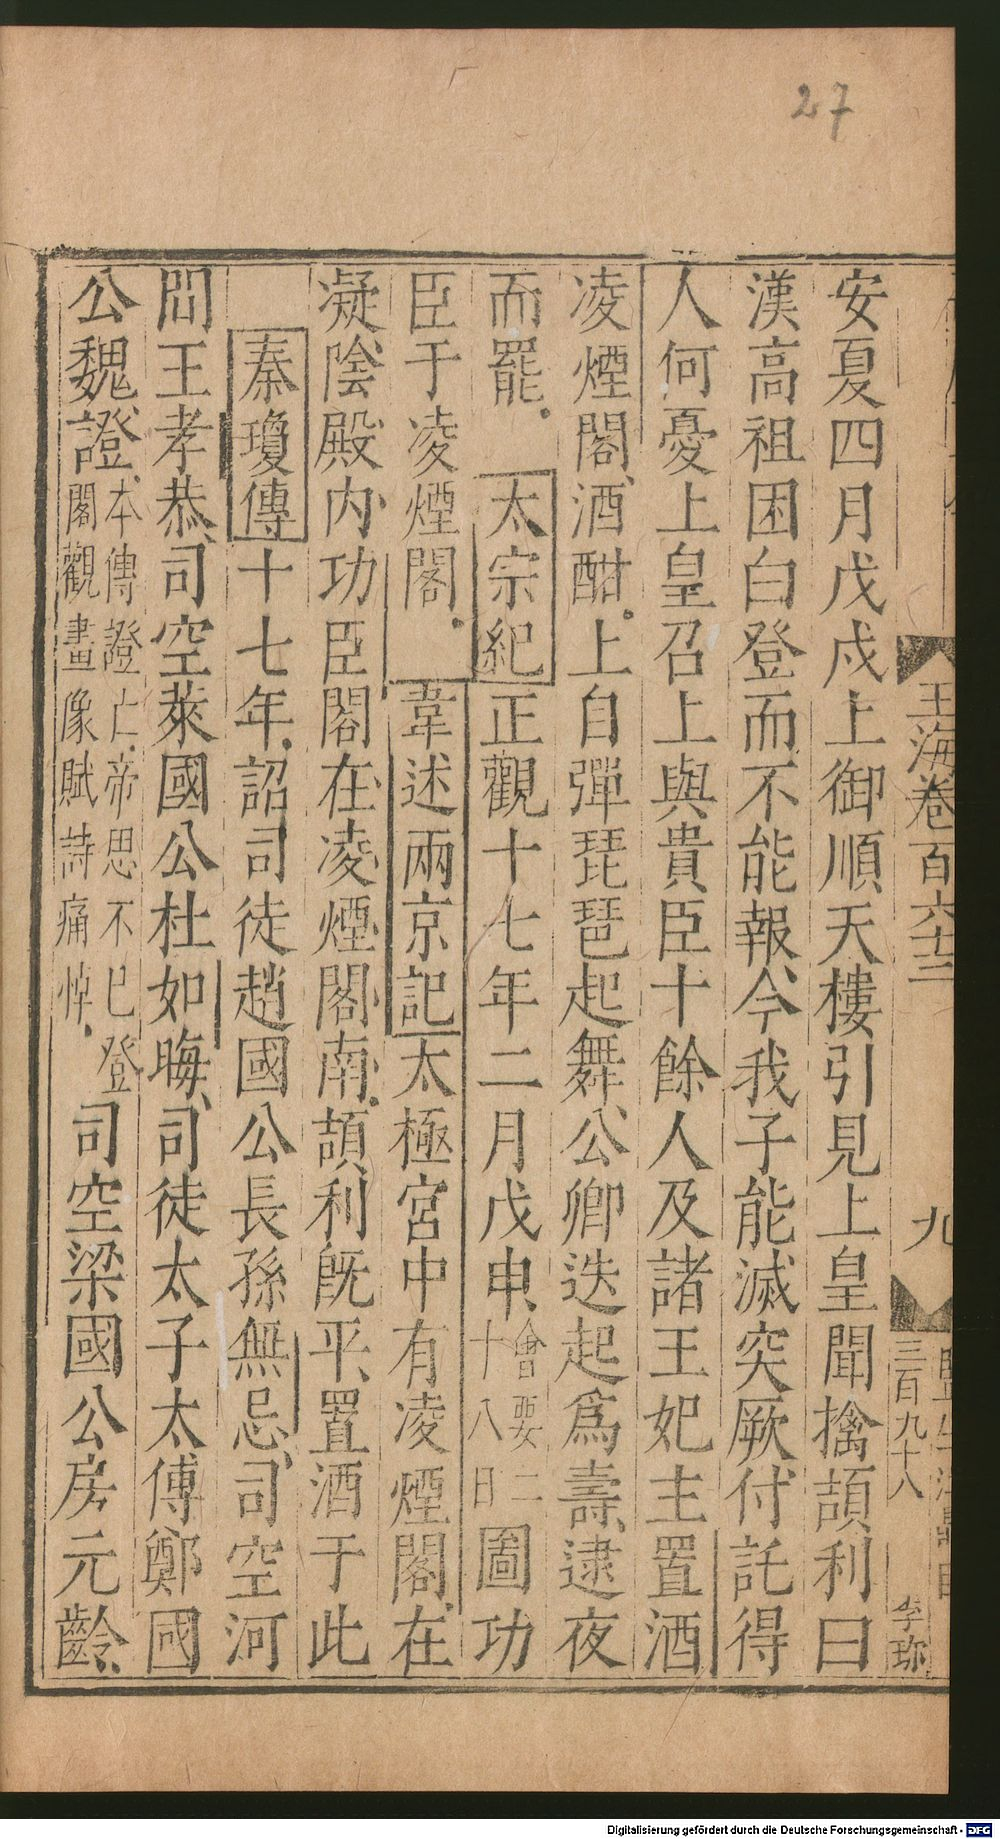 27
王海卷百六十三
九
三百九十八
李珎
安夏四月戊戌上御順天樓引見上皇聞擒頡利曰
漢高祖困白登而不能報今我子能滅突厥付託得
人何憂上皇召上與貴臣十餘人及諸王妃主置酒
凌煙閣酒酣上自彈琵琶起舞公卿迭起爲壽逮夜
而罷 太宗紀正觀十七年二月戊申會要二十八日圖功
臣于凌煙閣 韋述兩京記太極宮中有凌煙閣在
凝陰殿内功臣閣在凌煙閣南頡利旣平置酒于此
秦瓊傳十七年詔司徒趙國公長孫無忌司空河
間王孝恭司空萊國公杜如晦司徒太子太傅鄭國
公魏證本傳證亡帝思不已登閣觀畫像賦詩痛悼司空梁國公房元齡
Digitalisierung gefördert durch die Deutsche Forschungsgemeinschaft - DFG